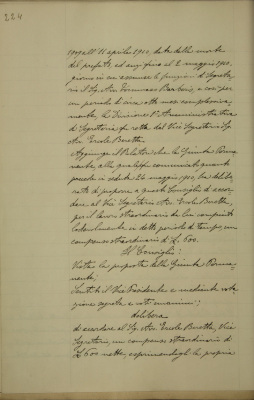 224
1909 all' 11 aprile 1910, data della morte
del prefato, ed anzi fino al 2 maggio 1910,
giorno in cui assunse le funzioni di Segreta-
rio il Sig. Avv. Tommaso Barberis, e così per
un periodo di circa otto mesi complessiva-
mente, la Divisione 1ª Amministrativa
di Segreteria fu retta dal Vice Segretario Sig.
Avv. Ercole Boretta.
Aggiunge il Relatore che la Giunta Perma-
nente, alla quale fu comunicato quanto
precede in seduta 24 maggio 1910, ha delibe-
rato di proporre a questo Consiglio di accor-
dare al Vice Segretario Avv. Ercole Boretta,
per il lavoro straordinario da lui compiuto
lodevolmente in detto periodo di tempo, un
compenso straordinario di L. 600.
Il Consiglio:
Vista la proposta della Giunta Perma-
nente;
Sentito il Vice Presidente e mediante vota-
zione segreta a voti unanimi;
delibera
di accordare al Sig. Avv. Ercole Boretta, Vice
Segretario, un compenso straordinario di
L. 600 nette, esprimendogli la propria